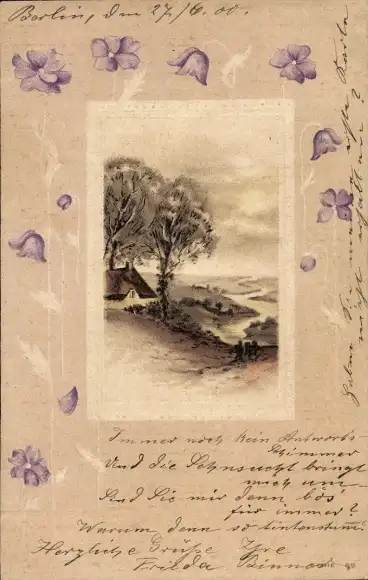 Berlin, den 27./6. 00.
Immer noch kein Antworts-
schimmer
Und die Sehnsucht bringt
mich um
Sind Sie mir denn bös'
für immer?
Warum denn so tintenstumm?
Herzliche Grüße Ihre
Frieda
Haben Sie meine Karte
nicht erhalten?